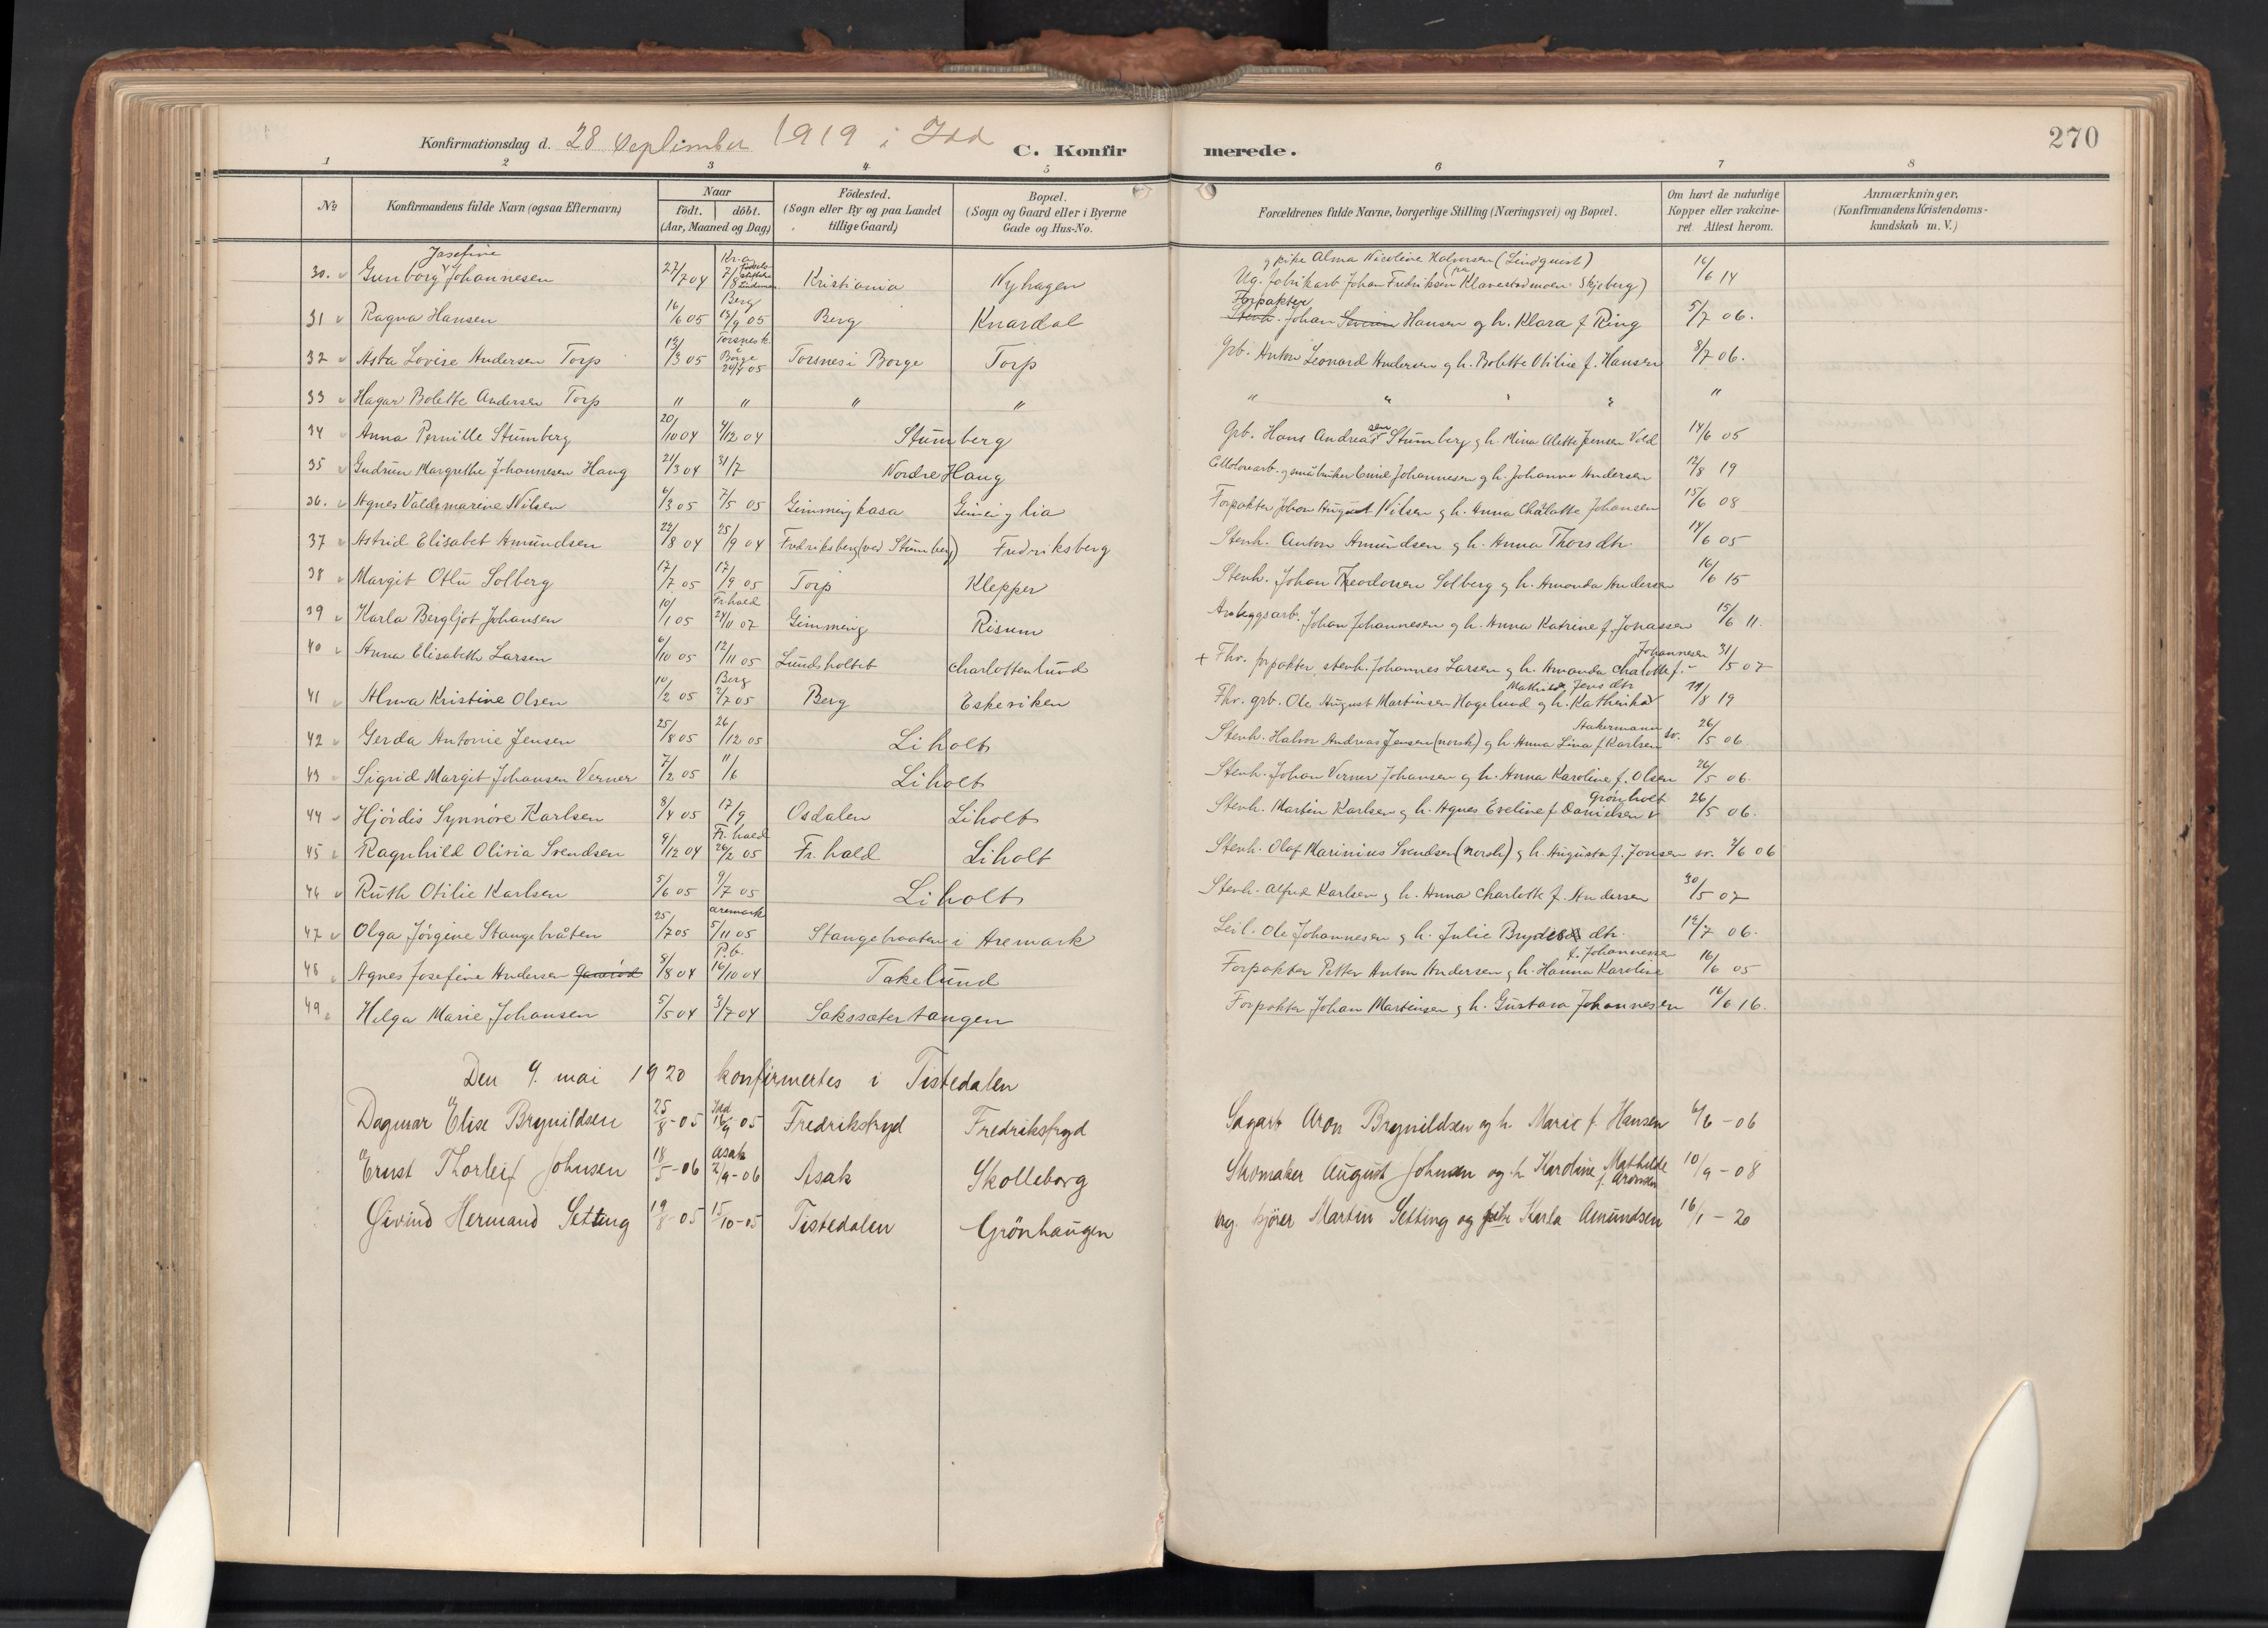 Konfirmationsdag d. 28 September 1919 i Idd C. Konfirmerede. 270
1 2 3 4 5 6 7 8
No Konfirmandens fulde Navn (ogsaa Efternavn) Naar født. døbt. (Aar, Maaned og Dag) Fødested. (Sogn eller By og paa Landet tillige Gaard) Bopæl. (Sogn og Gaard eller i Byerne Gade og Hus-No. Forældrenes fulde Navne, borgerlige Stilling (Næringsvei) og Bopæl. Om havt de naturlige Kopper eller vakcineret. Attest herom. Anmærkninger, (Konfirmandens Kristendomskundskab m. V.)
30. Gunborg Josefine Johannesen 27/7 04 Kr.a 7/8 Kristiania Nyhagen Ug. fabrikarb Johan Fredriksen (på Klavestadmoen Skjeberg) g pike Alma Nicoline Halvorsen (Lindquist) 16/6 14
31 Ragna Hansen 16/6 05 Berg 13/9 05 Berg Knardal Forpakter Johan Hansen g h. Klara f Ring 5/7 06.
32 Asta Lovise Andersen Torp 13/3 05 Torsnes k. i Borge 24/4 05 Torsnes i Borge Torp Grb. Anton Leonard Andersen g h. Bolette Otilie f. Hansen 8/7 06.
33 Hagar Bolette Andersen Torp " " " " " " " " "
34 Anna Pernille Stumberg 20/10 04 4/12 04 Stumberg Grb. Hans Andreassen Stumberg g h. Mina Alette Jensen Vold 14/6 05
35 Gudrun Margrethe Johannesen Haug 21/3 04 31/7 Nordre Haug Cellulosearb. g småbruker Emil Johannesen g h. Johanne Andersen 12/8 19
36. Agnes Valdemarine Nilsen 6/3 05 7/5 05 Gimmingkasa Gimming lia Forpakter Johan August Nilsen g h. Anna Chalotte Johansen 15/6 08
37 Astrid Elisabet Amundsen 22/8 04 25/9 04 Fredriksberg (ved Stumberg) Fredriksberg Stenh. Anton Amundsen g h. Anna Thorsdtr. 14/6 05
38 Margit Otlu Solberg 17/7 05 17/9 05 Torp Klepper Stenh. Johan Theodorsen Solberg g h. Amanda Andersen 16/6 15
39 Karla Bergljot Johansen 10/1 05 Fr.hald 24/11 07 Gimming Risum Anleggsarb. Johan Johannesen g h. Anna Katrine f. Jonassen 15/6 11.
40 Anna Elisabeth Larsen 6/10 05 12/11 05 Lundsholtet Charlottenlund + Fhv. forpakter, stenh. Johannes Larsen g h. Amanda Chalotte f. Johannesen 31/5 07
41 Alma Kristine Olsen 10/2 05 Berg 2/7 05 Berg Eskeviken Fhv. grb. Ole August Martinsen Hagelund g h. Kathrika Mathilde Jensdtr 11/8 19
42 Gerda Antonie Jensen 25/8 05 26/12 05 Liholt Stenh. Halvor Andreas Jensen (norsk) g h. Anna Lina f Karlsen Stakermann sv. 26/5 06
43 Sigrid Margit Johansen Verner 7/2 05 11/6 Liholt Stenh. Johan Verner Johansen g h. Anna Karoline f. Olsen 26/5 06.
44 Hjördis Synnöve Karlsen 8/4 05 17/9 Osdalen Liholt Stenh. Martin Karlsen g h. Agnes Eveline f Danielsen Grönholt 26/5 06.
45 Ragnhild Olivia Svendsen 9/12 04 Fr. hald 26/2 05 Fr. hald Liholt Stenh. Olaf Marinius Svendsen (norsk) g h. Augusta f. Jonsen sv. 2/6 06
46 Ruth Otilie Karlsen 5/6 05 9/7 05 Liholt Stenh. Alfred Karlsen g h. Anna Charlotte f. Andersen 30/5 07
47 Olga Jörgine Stangebråten 25/7 05 Aremark 5/11 05 Stangebraaten i Aremark Leil. Ole Johannesen g h. Julie Brydes dtr. 12/7 06.
48 Agnes Josefine Andersen 8/8 04 P.b. 16/10 04 Takelund Forpakter Petter Anton Andersen g h. Hanna Karoline f. Johannessen 16/6 05
49 Helga Marie Johansen 5/5 04 3/7 04 Sakssætertangen Forpakter Johan Martinsen g h. Gustava Johannesen 16/6 16.
Den 9. mai 1920 konfirmertes i Tistedalen
Dagmar Elise Brynildsen 25/8-05 Idd 17/9-05 Fredriksfryd Fredriksfryd Sagarb Aron Brynildsen og h. Marie f. Hansen 6/6-06
Ernst Thorleif Johnsen 18/5-06 Asak 2/9-06 Asak Skolleborg Skomaker August Johnsen og h Karoline Mathilde f. Aronsen 10/9-08
Øivind Hermand Setting 19/8-05 15/10-05 Tistedalen Grönhaugen ug. kjörer Martin Setting og pike Karla Amundsen 16/1-20